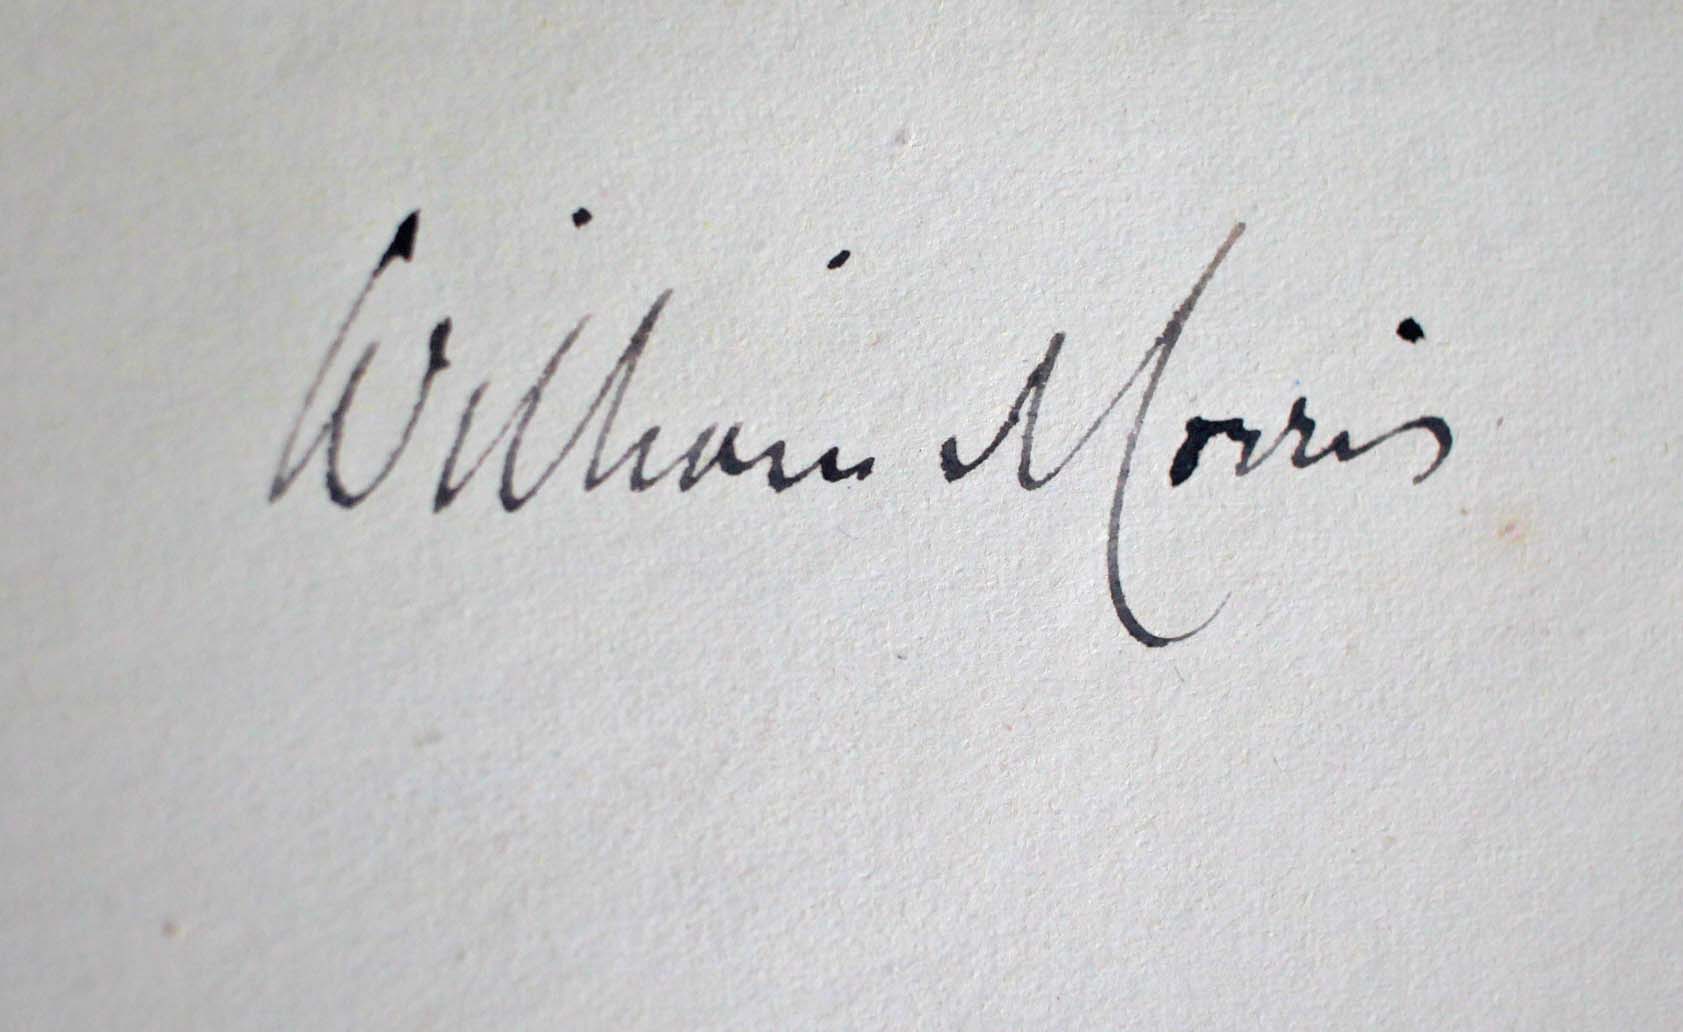 William Morris